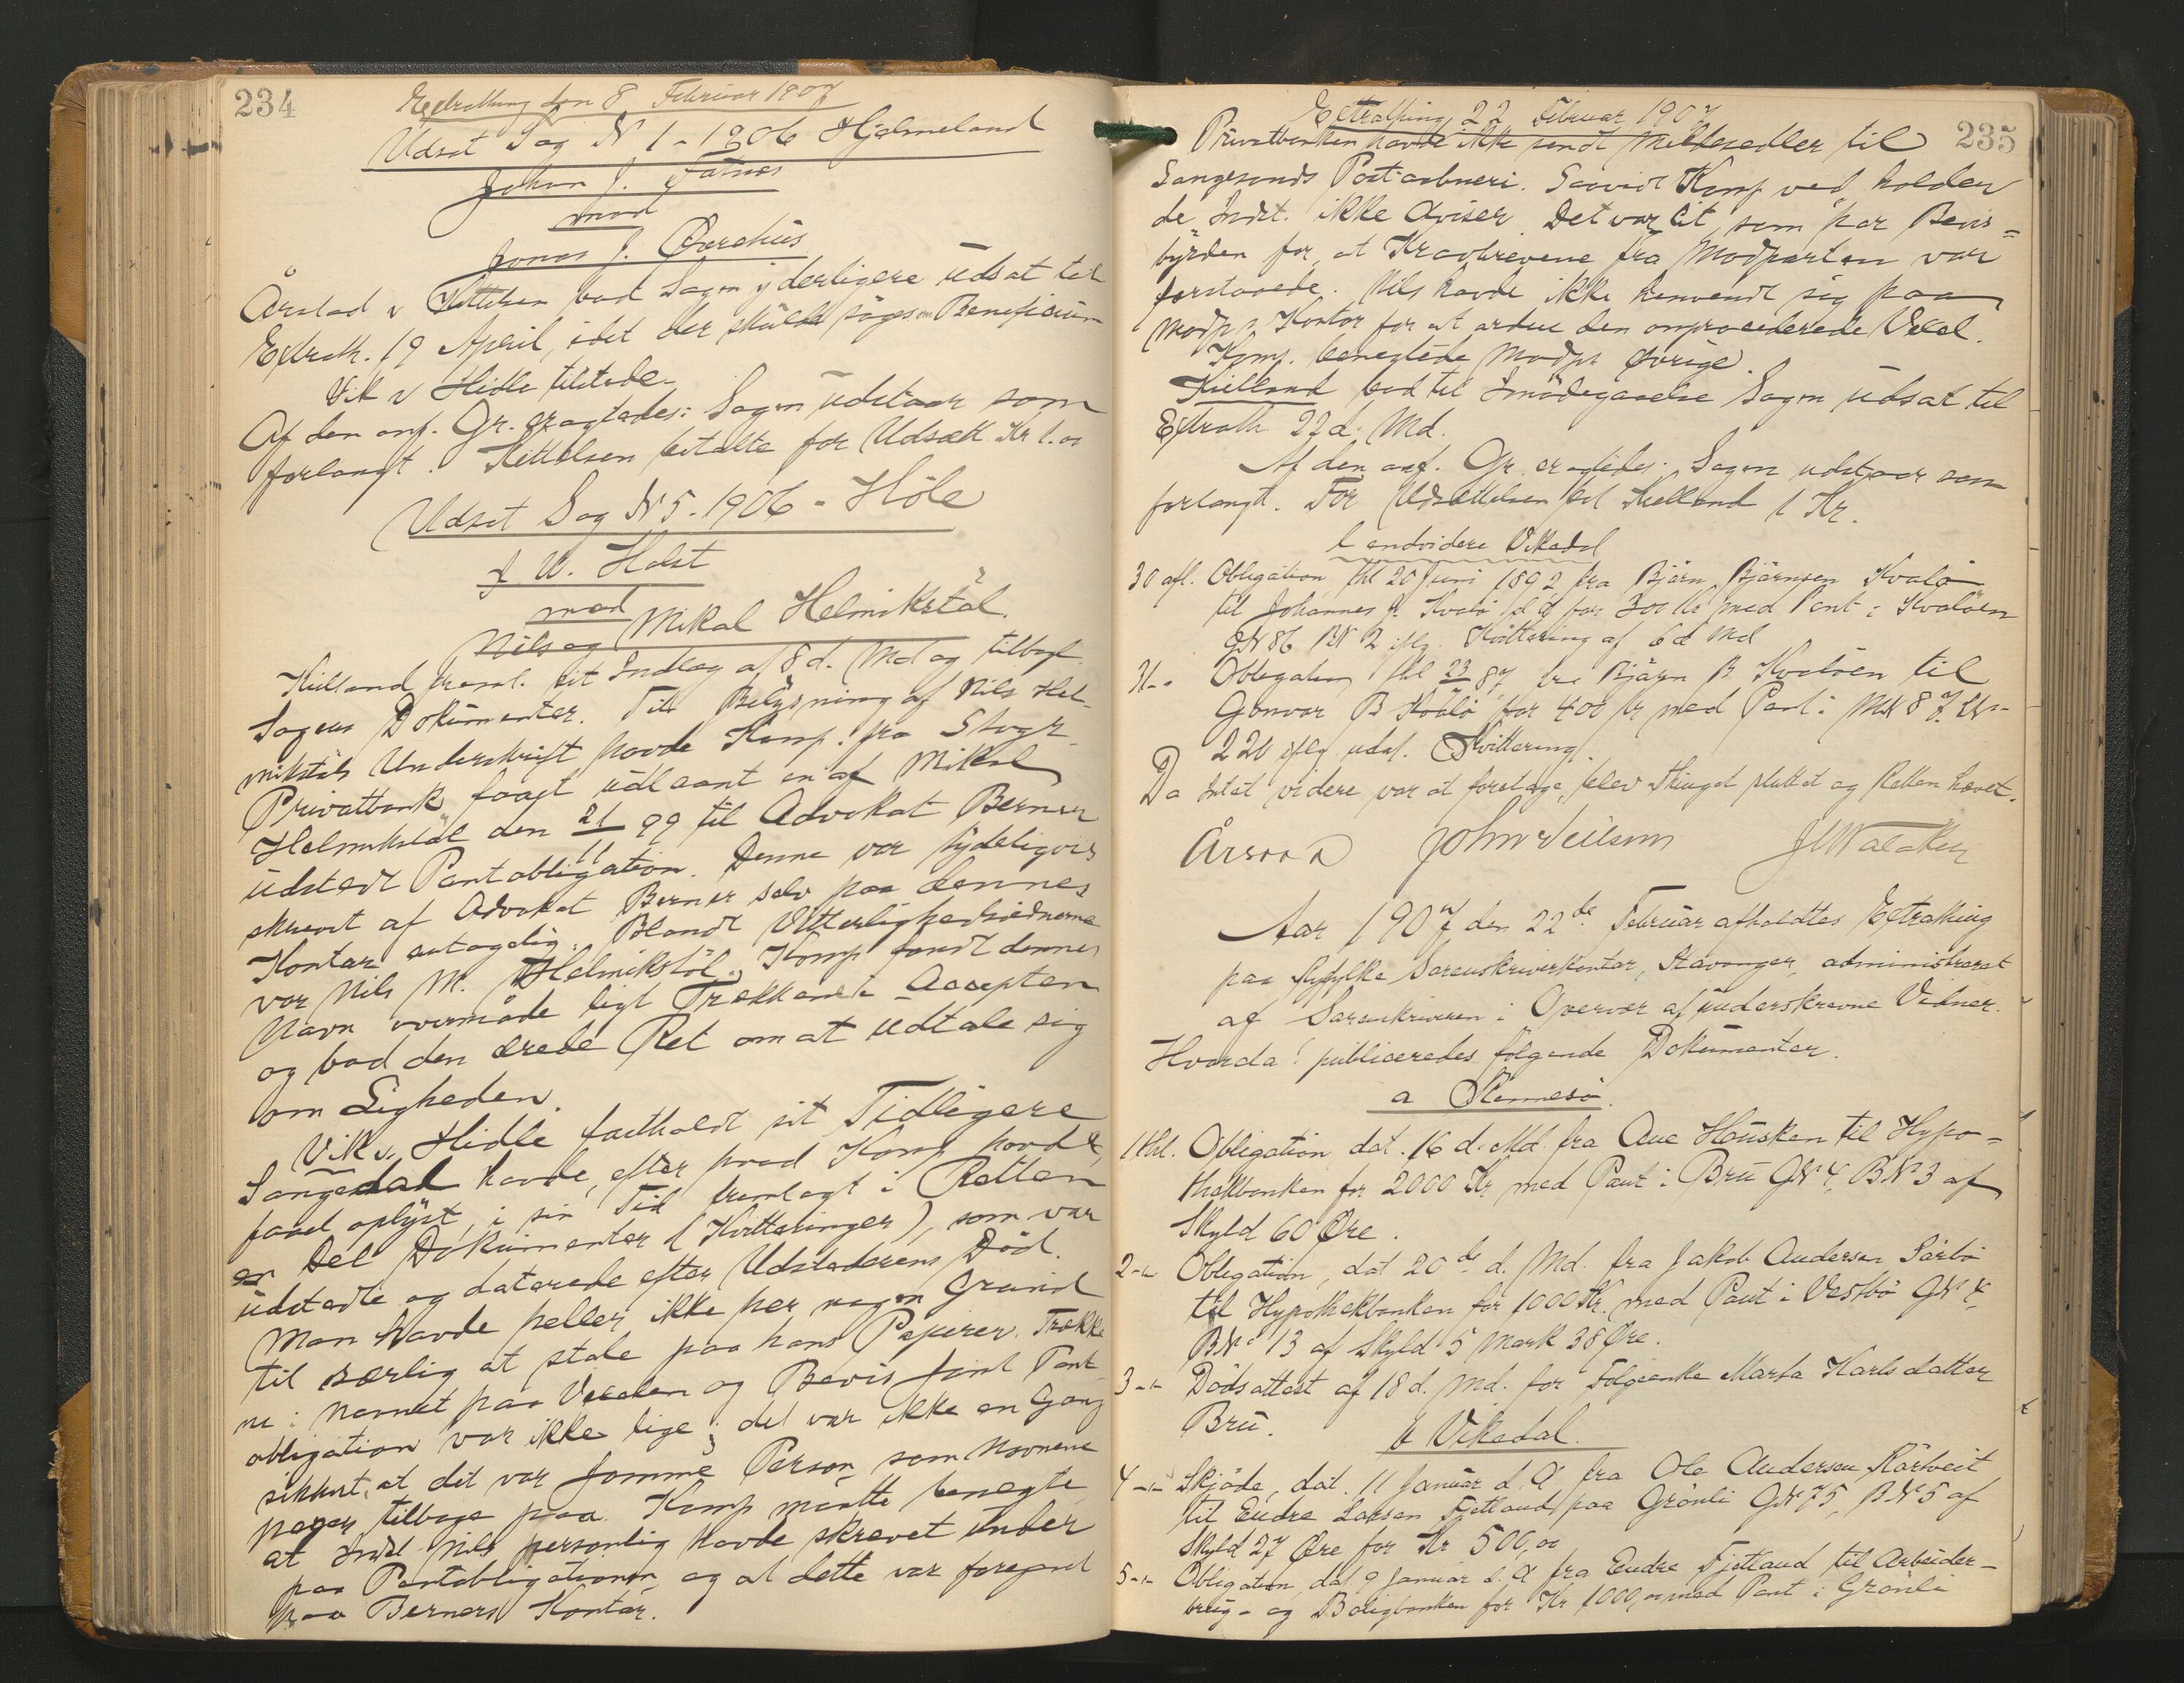 234
Extrathing den 8 Februar 1907
Udsat Sag N 1 - 1906 Hjelmeland
Johan J. Fatnes
mod
Jonas J. Øvrehus
Årstad v Kittelsen bad Sagen yderligere udsat til
Extrath. 19 April, idet der skulde söges om Beneficium
Vik v Hidle tilstede.
Af den anf. Gr. eragtedes: Sagen udstaar som
forlangt. Kittelsen betalte for Udsæt. Kr 1.00
Udsat Sag N 5 - 1906 - Höle
W. Holst
mod
Nils og Mikal Helmikstöl.
Kielland freml. sit Indlæg af 8 d. Md og tilbagl.
Sagens Dokumenter. Til Belysning af Nils Hel-
mikstöls Underskrift havde Komp. fra Stvgr.
Privatbank faaet udlaant en af Mikal
Helmikstöl den 21/11 99 til Advokat Berner
udstedt Pantobligation. Denne var tydeligvis
skrevet af Advokat Berner selv paa dennes
Kontor antagelig. Blandt Vitterlighedsvidnerne
var Nils M. Helmikstöl. Komp fandt dennes
Navn overmåde ligt Trækkanet. Accepten
og bad den ærede Ret om at udtale sig
om Ligheden.
Vik v. Hidle fastholdt sit Tidligere
Sangesdal havde, efter hvad Komp havde
faaet oplyst, i sin Tid fremlagt i Retten
en Del Dokumenter (Kvitteringer), som var
udstedte og daterede efter Udstederens Död.
Man havde heller ikke her nogen Grund
til særlig at stole paa hans Papirer. Trække
ne i Navnet paa Vexelen og Bevis samt Pant
obligation var ikke lige; det var ikke en Gang
sikkert, at det var samme Person, som Navnene
peger tilbage paa. Komp maatte benegte
at Indst. Nils personlig havde skrevet under
paa Pantobligationen og at dette var foregaaet
paa Berners Kontor.
Extrathing, 22 Februar 1907
235
Privatbanken havde ikke sendt Meldesedler til
Sangesands Postaabneri. Saavidt Komp ved holder
de Indst. ikke Aviser. Det var Cit, som har Bevis=
byrden for, at Kravbrevene fra Modparten var
forstaaede. Nils havde ikke henvendt sig paa
Modp.s Kontor for at ordne den omprocederede Vexel.
Komp. benegtede Modp.s övrige.
Kielland bad til Imödegaaelse Sagen udsat til
Extrath 22 d. Md.
Af den anf. Gr. eragtedes: Sagen udstaar som
forlangt. For Udsættelsen bet Kielland 1 Kr.
b endvidere Vikedal
30 afl. Obligation thl 20 Juni 1892 fra Björn Björnsen Kvalö
til Johannes J. Kvalö for 300 Kr med Pant i Kvalöen
GN 86 BN 2 iflg. Kvittering af 6 d Md
31 - " Obligation thl 23/ 87 fra Björn B Kvalöen til
Gunvor B Kvalö for 400 Kr med Pant i MN 87 LN
220 iflg. udst. Kvittering.
Da Intet videre var at foretage, blev Thinget sluttet og Retten hævet.
Årstad John Neilson
Aar 1907 den 22de Februar afholdtes Extrathing
paa Ryfylke Sorenskriverkontor, Stavanger, administreret
af Sorenskriveren i Overvær af underskrevne Vidner.
Hvorda: publiceredes følgende Dokumenter.
a Rennesö.
1 thl. Obligation dat. 16 d. Md. fra Ane Hausken til Hypo-
thekbanken for 2000 Kr. med Pant i Bru GN 4, BN 3 af
Skyld 60 Øre.
2 - " - Obligation, dat 20de d. Md. fra Jakob Andersen Sörbö
til Hypothekbanken for 1000 Kr. med Pant i Vestbö GN 4
BN 13 af Skyld 5 Mark 38 Øre.
3 - " - Dödsattest af 18 d. Md. for Folgeenke Marta Karlsdatter
Bru.
b Vikedal.
4 - " - Skjöde, dat. 11 Januar d. A fra Ole Andersen Rörtveit
til Endre Larsen Fjetland paa Grönli GN 75, BN 5 af
Skyld 27 Øre for Kr 500,00
5 - " - Obligation, dat 9 Januar d. A fra Endre Fjetland til Arbeider-
brug- og Boligbanken for Kr 1000,00 med Pant i Grönli